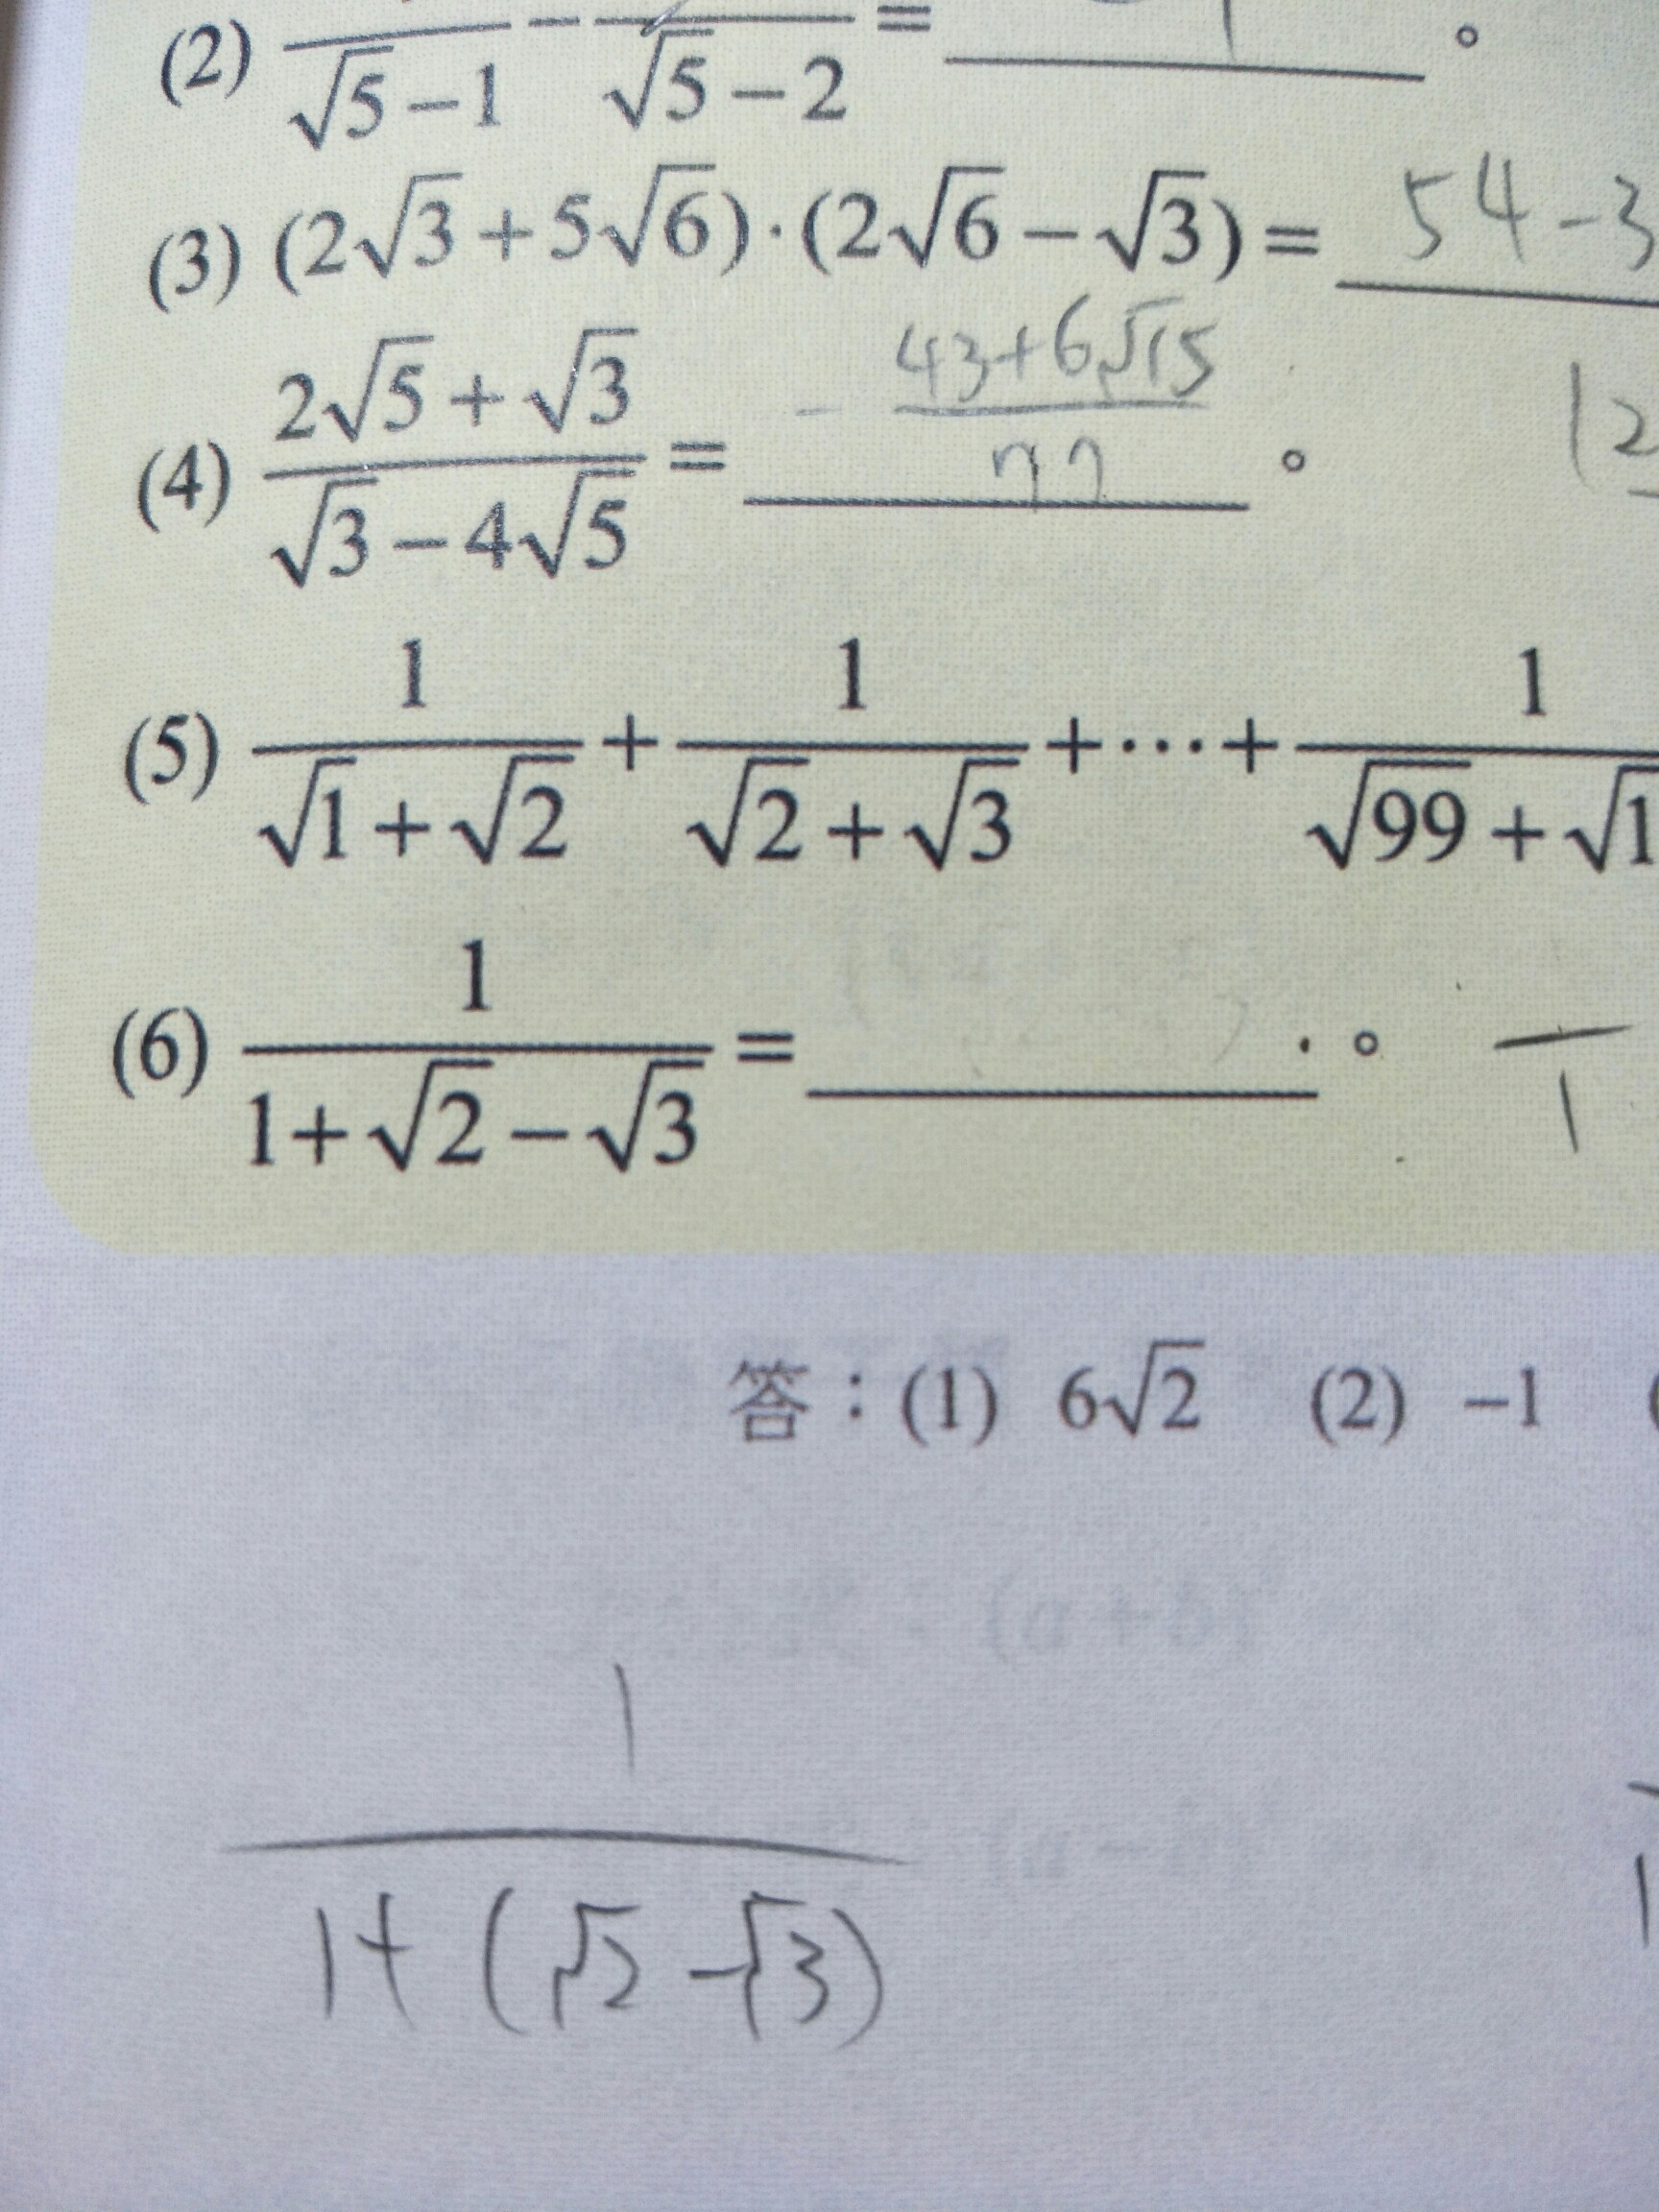 (2) —/(√5−1) − —/(√5−2) = 。
(3) (2√3+5√6)·(2√6−√3)= 54-3
(4) (2√5+√3)/(√3−4√5) = -(43+6√15)/77 。
12
(5) 1/(√1+√2) + 1/(√2+√3) +⋯+ 1/(√99+√1
(6) 1/(1+√2−√3) = 。 —/1
答：(1) 6√2 (2) −1 (
1/(1+(√2-√3))